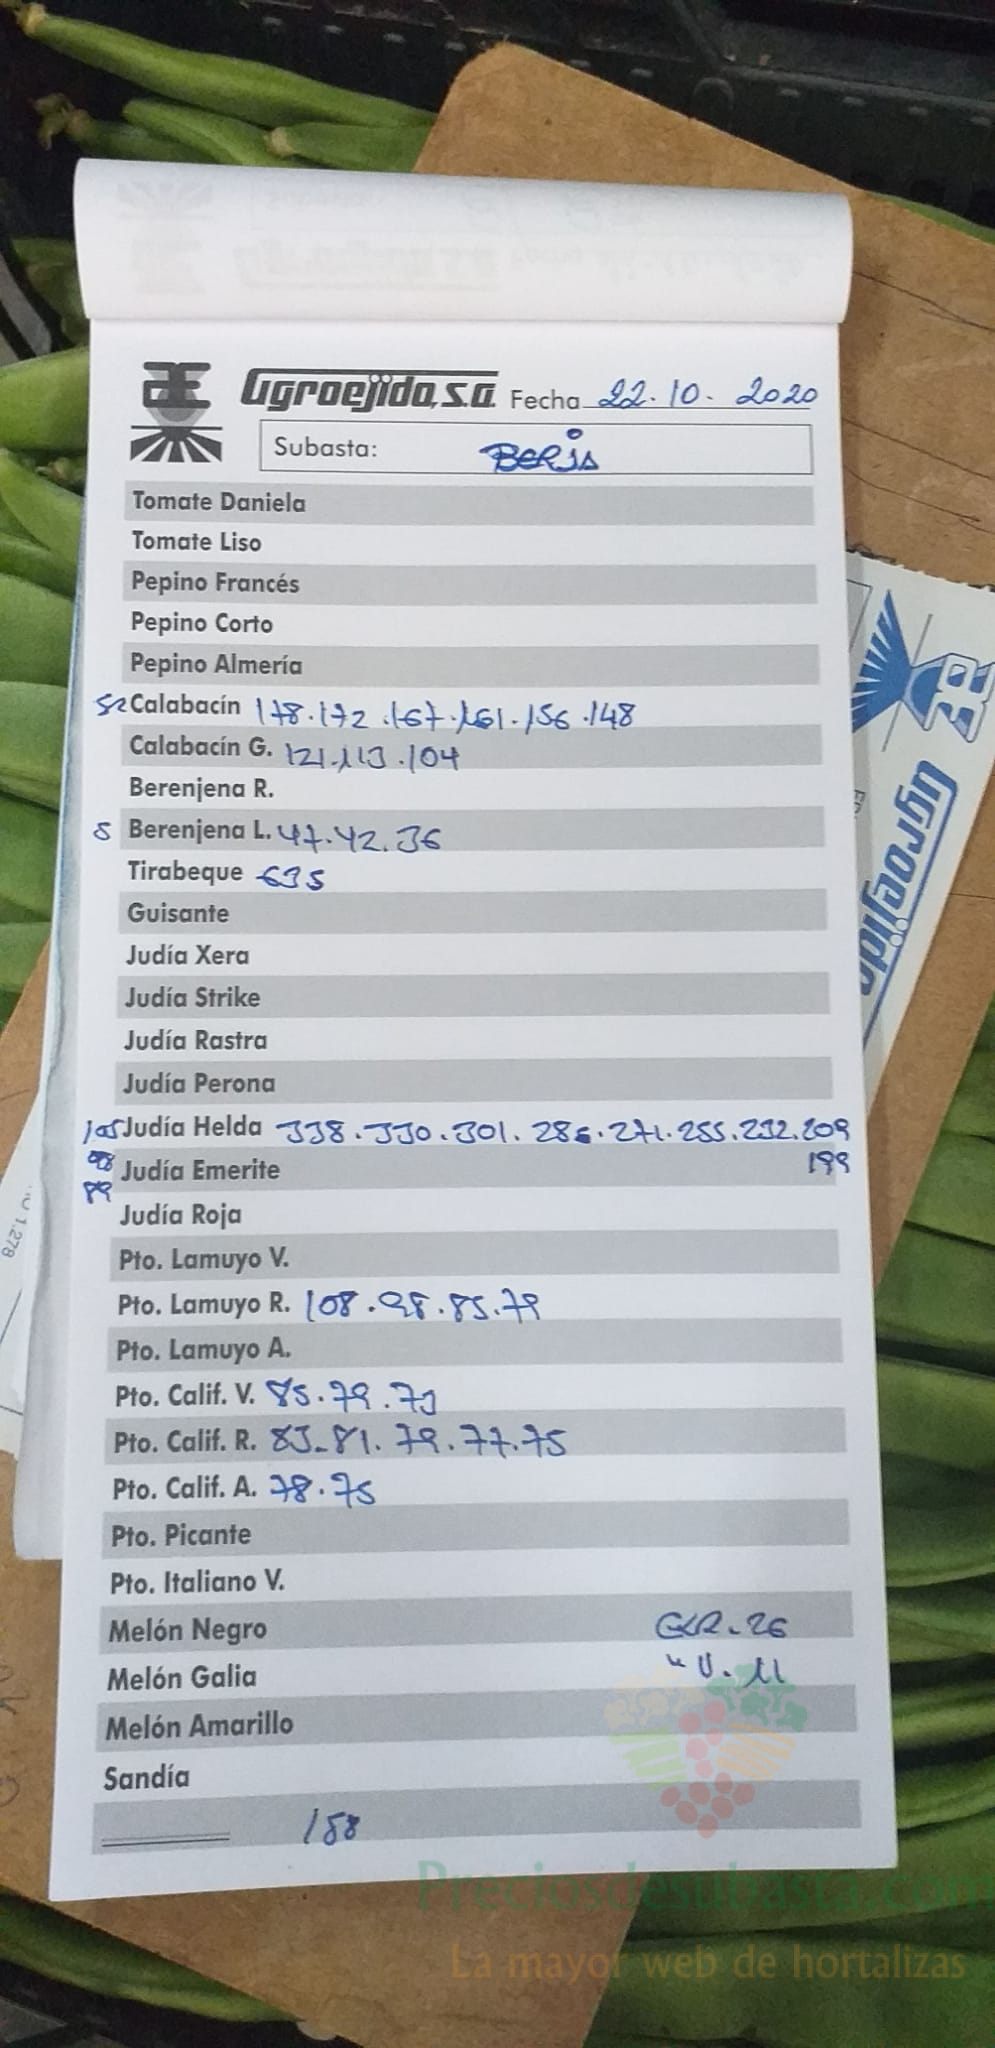 Agroejido, S.A. Fecha 22.10.2020
Subasta: BERJA
Tomate Daniela
Tomate Liso
Pepino Francés
Pepino Corto
Pepino Almería
52 Calabacín 178.172.167.161.156.148
Calabacín G. 121.113.104
Berenjena R.
5 Berenjena L. 47.42.36
Tirabeque 635
Guisante
Judía Xera
Judía Strike
Judía Rastra
Judía Perona
105 Judía Helda 338.330.301.286.271.255.232.209
98 Judía Emerite 199
89
Judía Roja
Pto. Lamuyo V.
Pto. Lamuyo R. 108.98.85.79
Pto. Lamuyo A.
Pto. Calif. V. 85.79.73
Pto. Calif. R. 83.81.79.77.75
Pto. Calif. A. 78.75
Pto. Picante
Pto. Italiano V.
Melón Negro
Melón Galia " V. 11
Melón Amarillo
Sandía
188
Agroejido
1.278
Preciosdesubasta.com
La mayor web de hortalizas